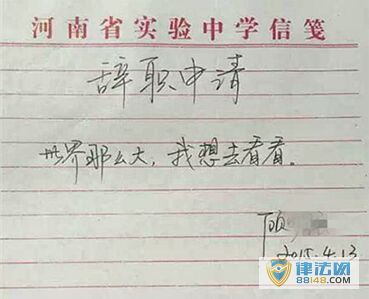 河南省实验中学信笺
辞职申请
世界那么大，我想去看看。
顾
2015.4.13
律法网
88148.com